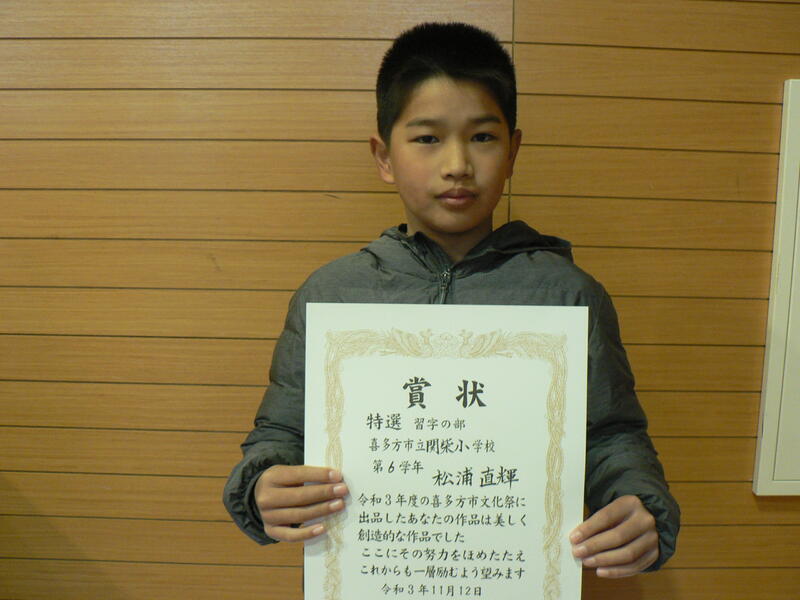 賞状
特選 習字の部
喜多方市立関柴小学校
第6学年 松浦直輝
令和3年度の喜多方市文化祭に
出品したあなたの作品は美しく
創造的な作品でした
ここにその努力をほめたたえ
これからも一層励むよう望みます
令和3年11月12日